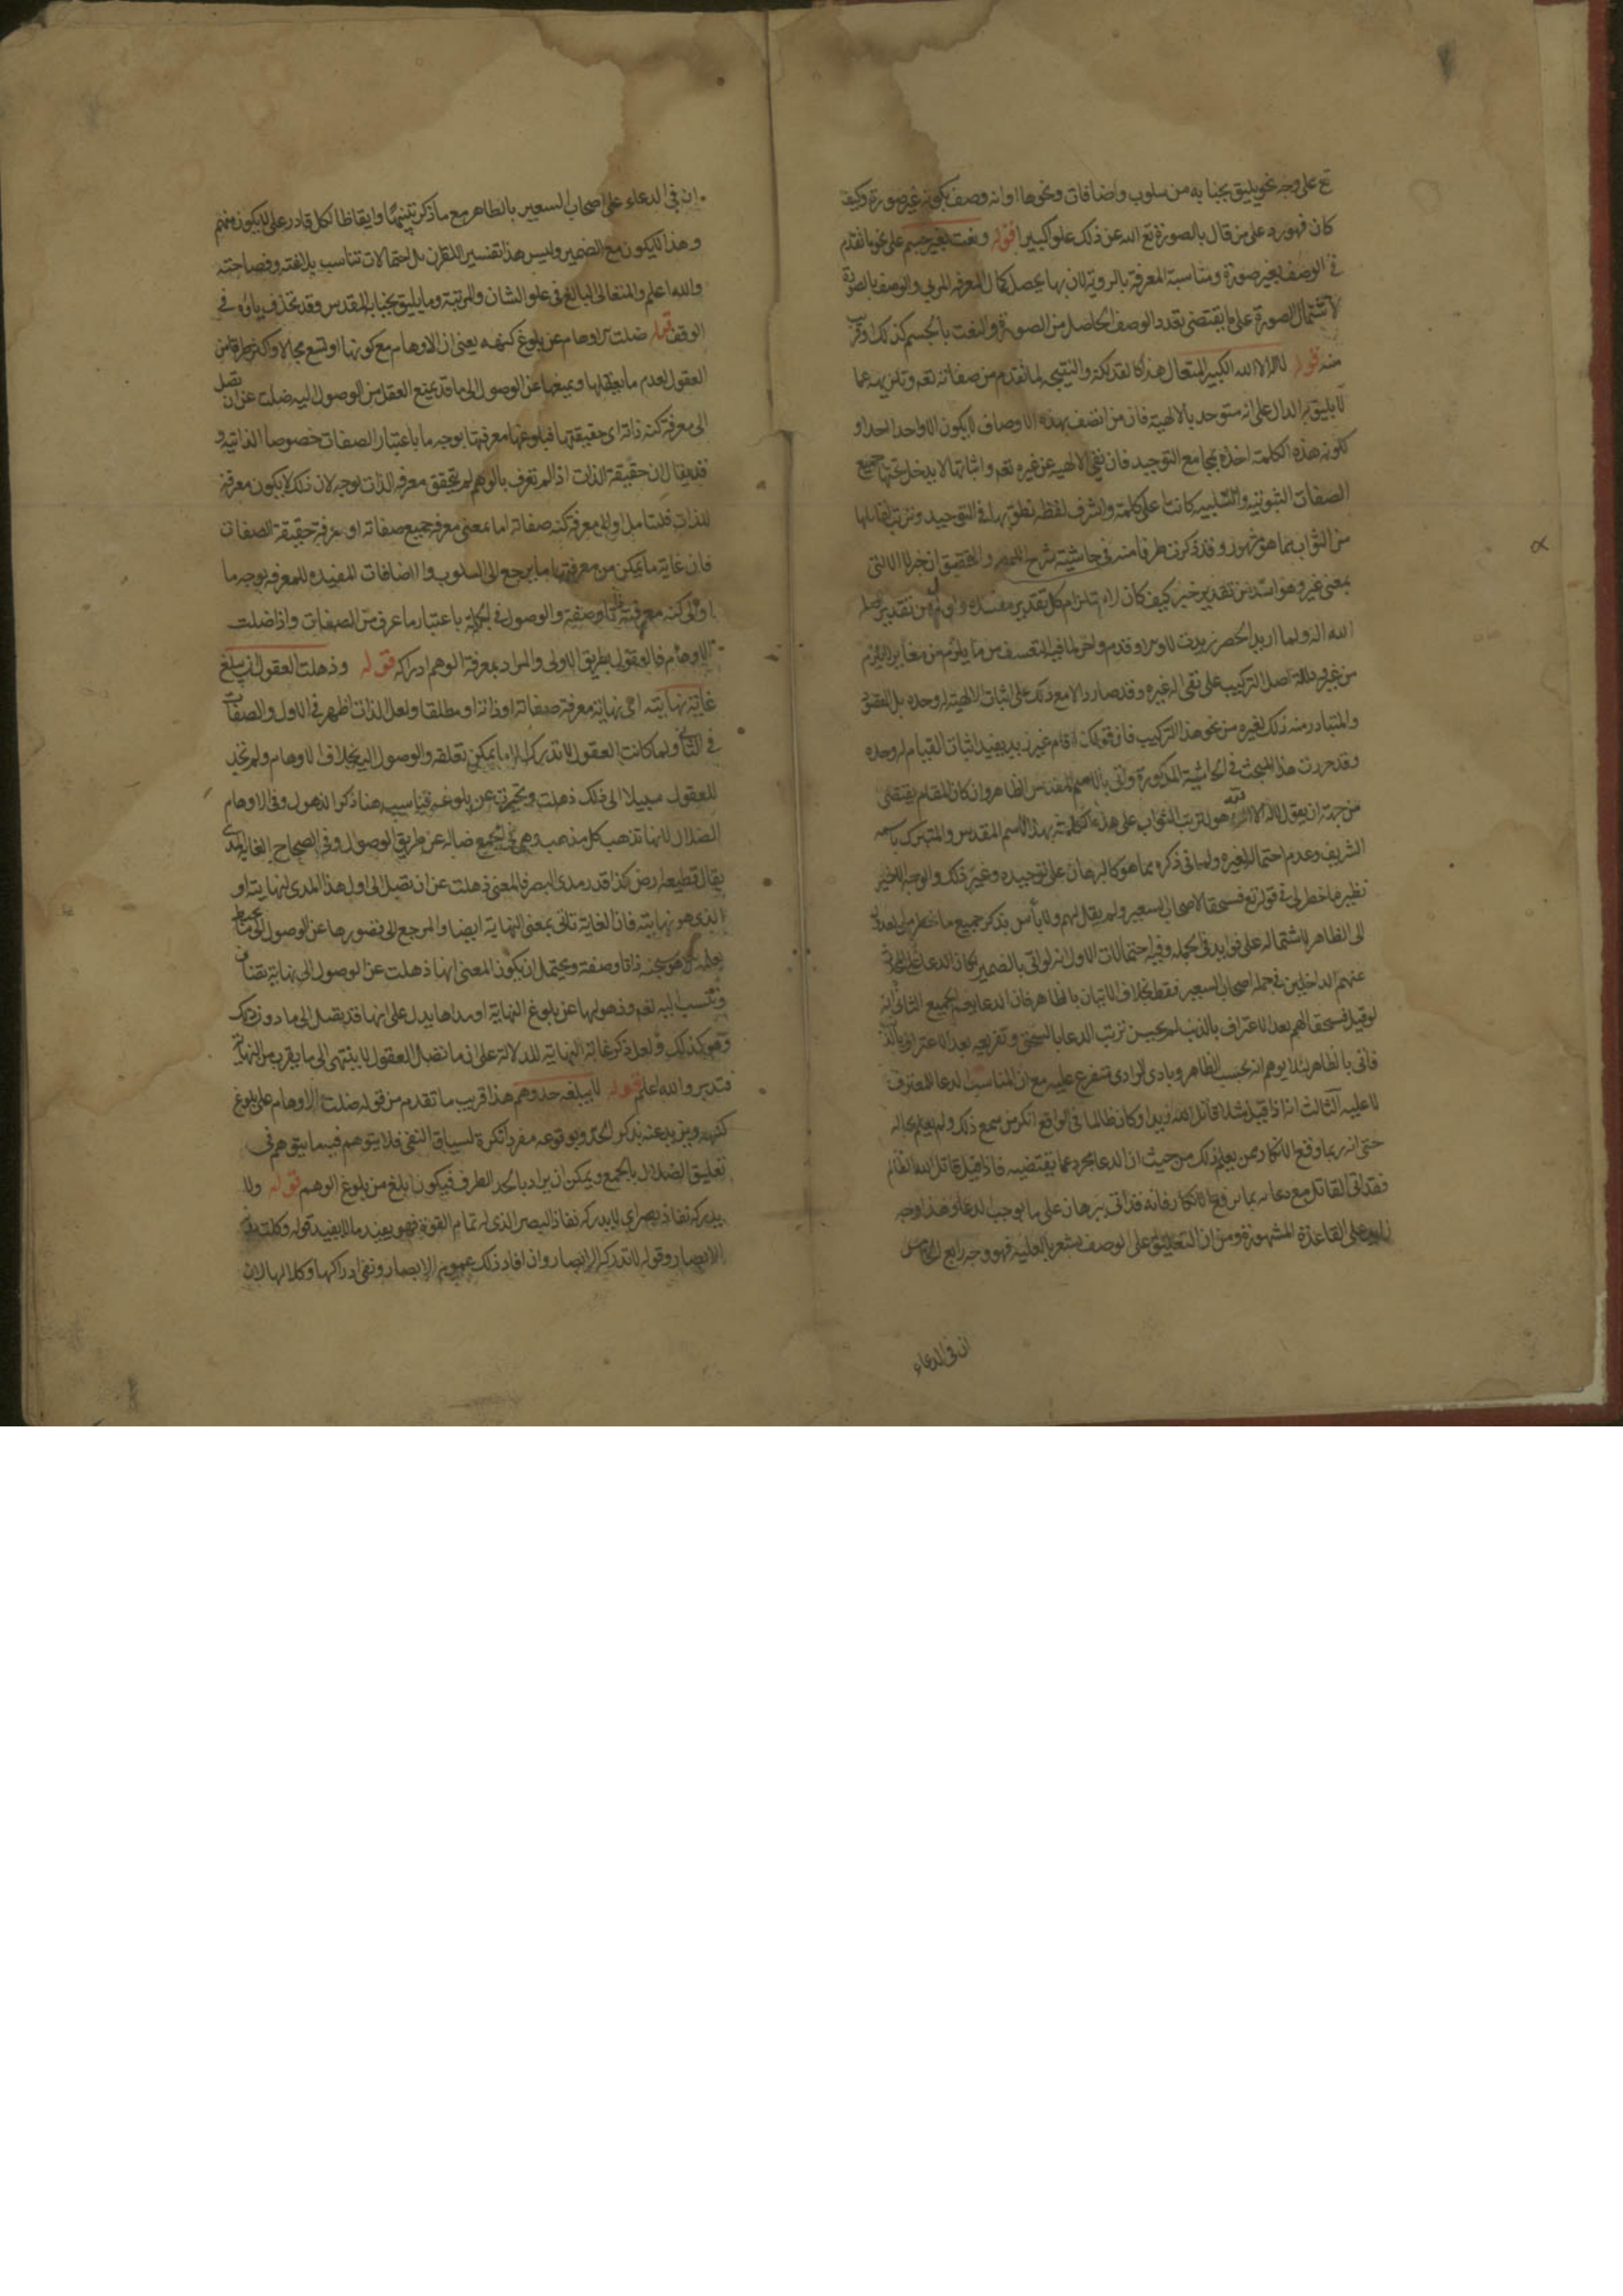 تع على وجه نحو يليق بجنابه من سلوب واضافات ونحوها او انه وصف بكونه غير صورة وكيف
كان فهو رد على من قال بالصورة تع الله عن ذلك علوا كبيرا قوله ونعت بغير جسم على نحو ما تقدم
في الوصف بغير صورة ومناسبة المعرفة بالروية لان بها يحصل كمال المعرفة للمرئي والوصف بالصورة
لاشتمال الصورة على ما يقتضي تعدد الوصف الحاصل من الصورة والنعت بالجسم كذلك وقريب
منه قوله لا اله الا الله الكبير المتعال هذا كالفذلكة والنتيجة لما تقدم من صفاته تعه وتنزيهه عما
لا يليق به الدال على انه متوحد بالالهية فان من اتصف بهذه الاوصاف لا يكون الا واحدا احدا و
لكون هذه الكلمة اخذه بمجامع التوحيد فان نفي الالهية عن غيره تعه واثباتها له يدخل تحتها جميع
الصفات الثبوتية والسلبية كانت اعلى كلمة واشرف لفظة نطق بها في التوحيد وترتب لقايلها
من الثواب بما هو مشهور وقد ذكرت طرفا منه في حاشية شرح اللمعه والتحقيق ان خبر لا الا التي
بمعنى غير وهو اسد من تقدير خبر كيف كان لاستلزام كل تقدير مفسدة واولى من تقدير اصله
الله اله ولما اريد الحصر زيدت لا والا وقدم واخر لما فيه التعسف من ما يلزم من مغاير
من غير دلالة اصل التركيب على نفي اله غيره وقد صار دالا مع ذلك على اثبات الالهية له وحده بل المقصود
والمتبادر منه ذلك لغيره من نحو هذا التركيب فان قولك ما قام غير زيد يفيد اثبات القيام له وحده
وقد حررت هذا المبحث في الحاشية المذكورة واتى بالاسم المقدس الظاهر وان كان المقام يقتضي
من جهة ان يقول لا اله الا هو لترتب الثواب على هذه الكلمة بهذا الاسم المقدس والمتبرك باسمه
الشريف وعدم احتماله لغيره ولما في ذكره مما هو كالبرهان على توحيده وغير ذلك والوجه الاخير
نظير ما خطر لي في قوله تع فسحقا لاصحاب السعير ولم يقل لهم ولا بأس بذكر جميع ما خطر لي لعدوله
الى الظاهر لاشتماله على فوايد في الجملة وفيه احتمالات الاول انه لو اتى بالضمير لكان الدعاء على
عنهم الداخلين في جملة اصحاب السعير فقط بخلاف الاتيان بالظاهر فان الدعا يعم الجميع الثاني انه
لو قيل فسحقا لهم بعد الاعتراف بالذنب لم يحسن ترتب الدعا بالسحق وتفريعه بعد الاعتراف بالذنب
فاتى بالظاهر لئلا يوهم انه بحسب الظاهر وبادي الراي متفرع عليه مع ان المناسب الدعا للمعترف
لا عليه الثالث انه اذا قيل مثلا قاتل الله زيدا وكان ظالما في الواقع انكر من سمع ذلك ولم يعلم بحاله
حتى انه ربما وقع الانكار ممن يعلم ذلك من حيث ان الدعا مجرد عما يقتضيه فاذا قيل قاتل الله الظالم
فقد اتى القائل مع دعائه بما يرفع الانكار فانه قد اتى ببرهان على ما يوجب الدعاء وهذا وجه
زايد على القاعدة المشهورة ومن ان التعليق على الوصف مشعر بالعلية فهو وجه رابع الخامس
ان في الدعاء
ان في الدعاء على اصحاب السعير بالظاهر مع ما ذكر تنبيها وايقاظا لكل قادر على ان لا يكون منهم
وهذا لا يكون مع الضمير وليس هذا تفسير للقران بل احتمالات تناسب بلاغته وفصاحته
والله اعلم والمتعالي البالغ في علو الشان والمرتبة وما يليق بجنابه المقدس وقد تحذف ياؤه في
الوقف قوله ضلت الاوهام عن بلوغ كنهه يعني ان الاوهام مع كونها اوسع مجالا واكثر من
العقول لعدم ما يعقلها ويمنعها عن الوصول الى ما قد يمنع العقل من الوصول اليه ضلت عن ان تصل
الى معرفة كنه ذاته اي حقيقتها فبلوغها معرفتها بوجه ما باعتبار الصفات خصوصا الذاتية و
قد يقال ان حقيقة الذات اذا لم تعرف بالوهم لم يتحقق معرفة الذات بوجه لان ذلك لا يكون معرفة
للذات فليتامل والى معرفة كنه صفاته اما بمعنى معرفة جميع صفاته او معرفة حقيقة الصفات
فان غاية ما يمكن من معرفتها ما يرجع الى السلوب والاضافات المفيدة للمعرفة بوجه ما
او الى كنه معرفته ذاتا وصفة والوصول في الجملة باعتبار ما عرف من الصفات واذا ضلت
الاوهام فالعقول بطريق الاولى والمراد بمعرفة الوهم ادراكه قوله وذهلت العقول ان تبلغ
غاية نهايته اي نهاية معرفة صفاته او ذاته او مطلقا ولعل الذات اظهر في الاول والصفات
في الثاني ولما كانت العقول لا تدرك الا ما يمكن تعلقه والوصول اليه بخلاف الاوهام ولم تجد
للعقول سبيلا الى ذلك ذهلت وتحيرت عن بلوغه فيناسب هنا ذكر الذهول وفي الاوهام
الضلال لانها تذهب كل مذهب وهي في الجميع ضالة عن طريق الوصول وفي الصحاح الغاية مدى
يقال قطيعة ارض كذا قدر مدى البصر فالمعنى ذهلت عن ان تصل الى اول هذا المدى لنهايته او
الذي هو نهايته فان الغاية تاتي بمعنى النهاية ايضا والمرجع الى قصورها عن الوصول الى ما يحيط
علمه كما هو بكنه ذاتا وصفة ويحتمل ان يكون المعنى انها ذهلت عن الوصول الى نهاية تضاف
وتنسب اليه تعه وذهولها عن بلوغ النهاية او مداها يدل على انها قد يصل الى ما دون ذلك
وهو كذلك ولعل ذكر غاية النهاية للدلالة على ان ما تصل العقول لا ينتهي الى ما يقرب من النهاية
فتدبر والله اعلم قوله لا يبلغه حد وهم هذا قريب ما تقدم من قوله ضلت الاوهام على بلوغ
كنهه ويزيد عنه بذكر الحد وبوقوعه مفردا نكرة لسياق النفي فلا يتوهم فيه ما يتوهم في
تعليق الضلال بالجمع ويمكن ان يراد بالحد الطرف فيكون ابلغ من بلوغ الوهم قوله ولا
يدركه نفاذ بصر اي لا يدركه نفاذ البصر الذي له تمام القوة فهو يفيد ما لا يفيد قوله وكلت دونه
الابصار وقوله لا تدركه الابصار وان افاد ذلك عموم الابصار ونفي ادراكها وكلالها لان